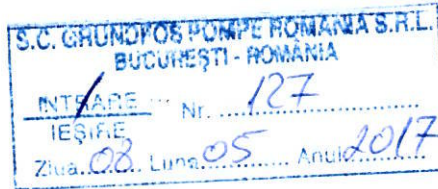 S.C. GRUNDFOS POMPE ROMANIA S.R.L.
BUCUREŞTI - ROMÂNIA
INTRARE Nr. 127
IEŞIRE
Ziua 08 Luna 05 Anul 2017